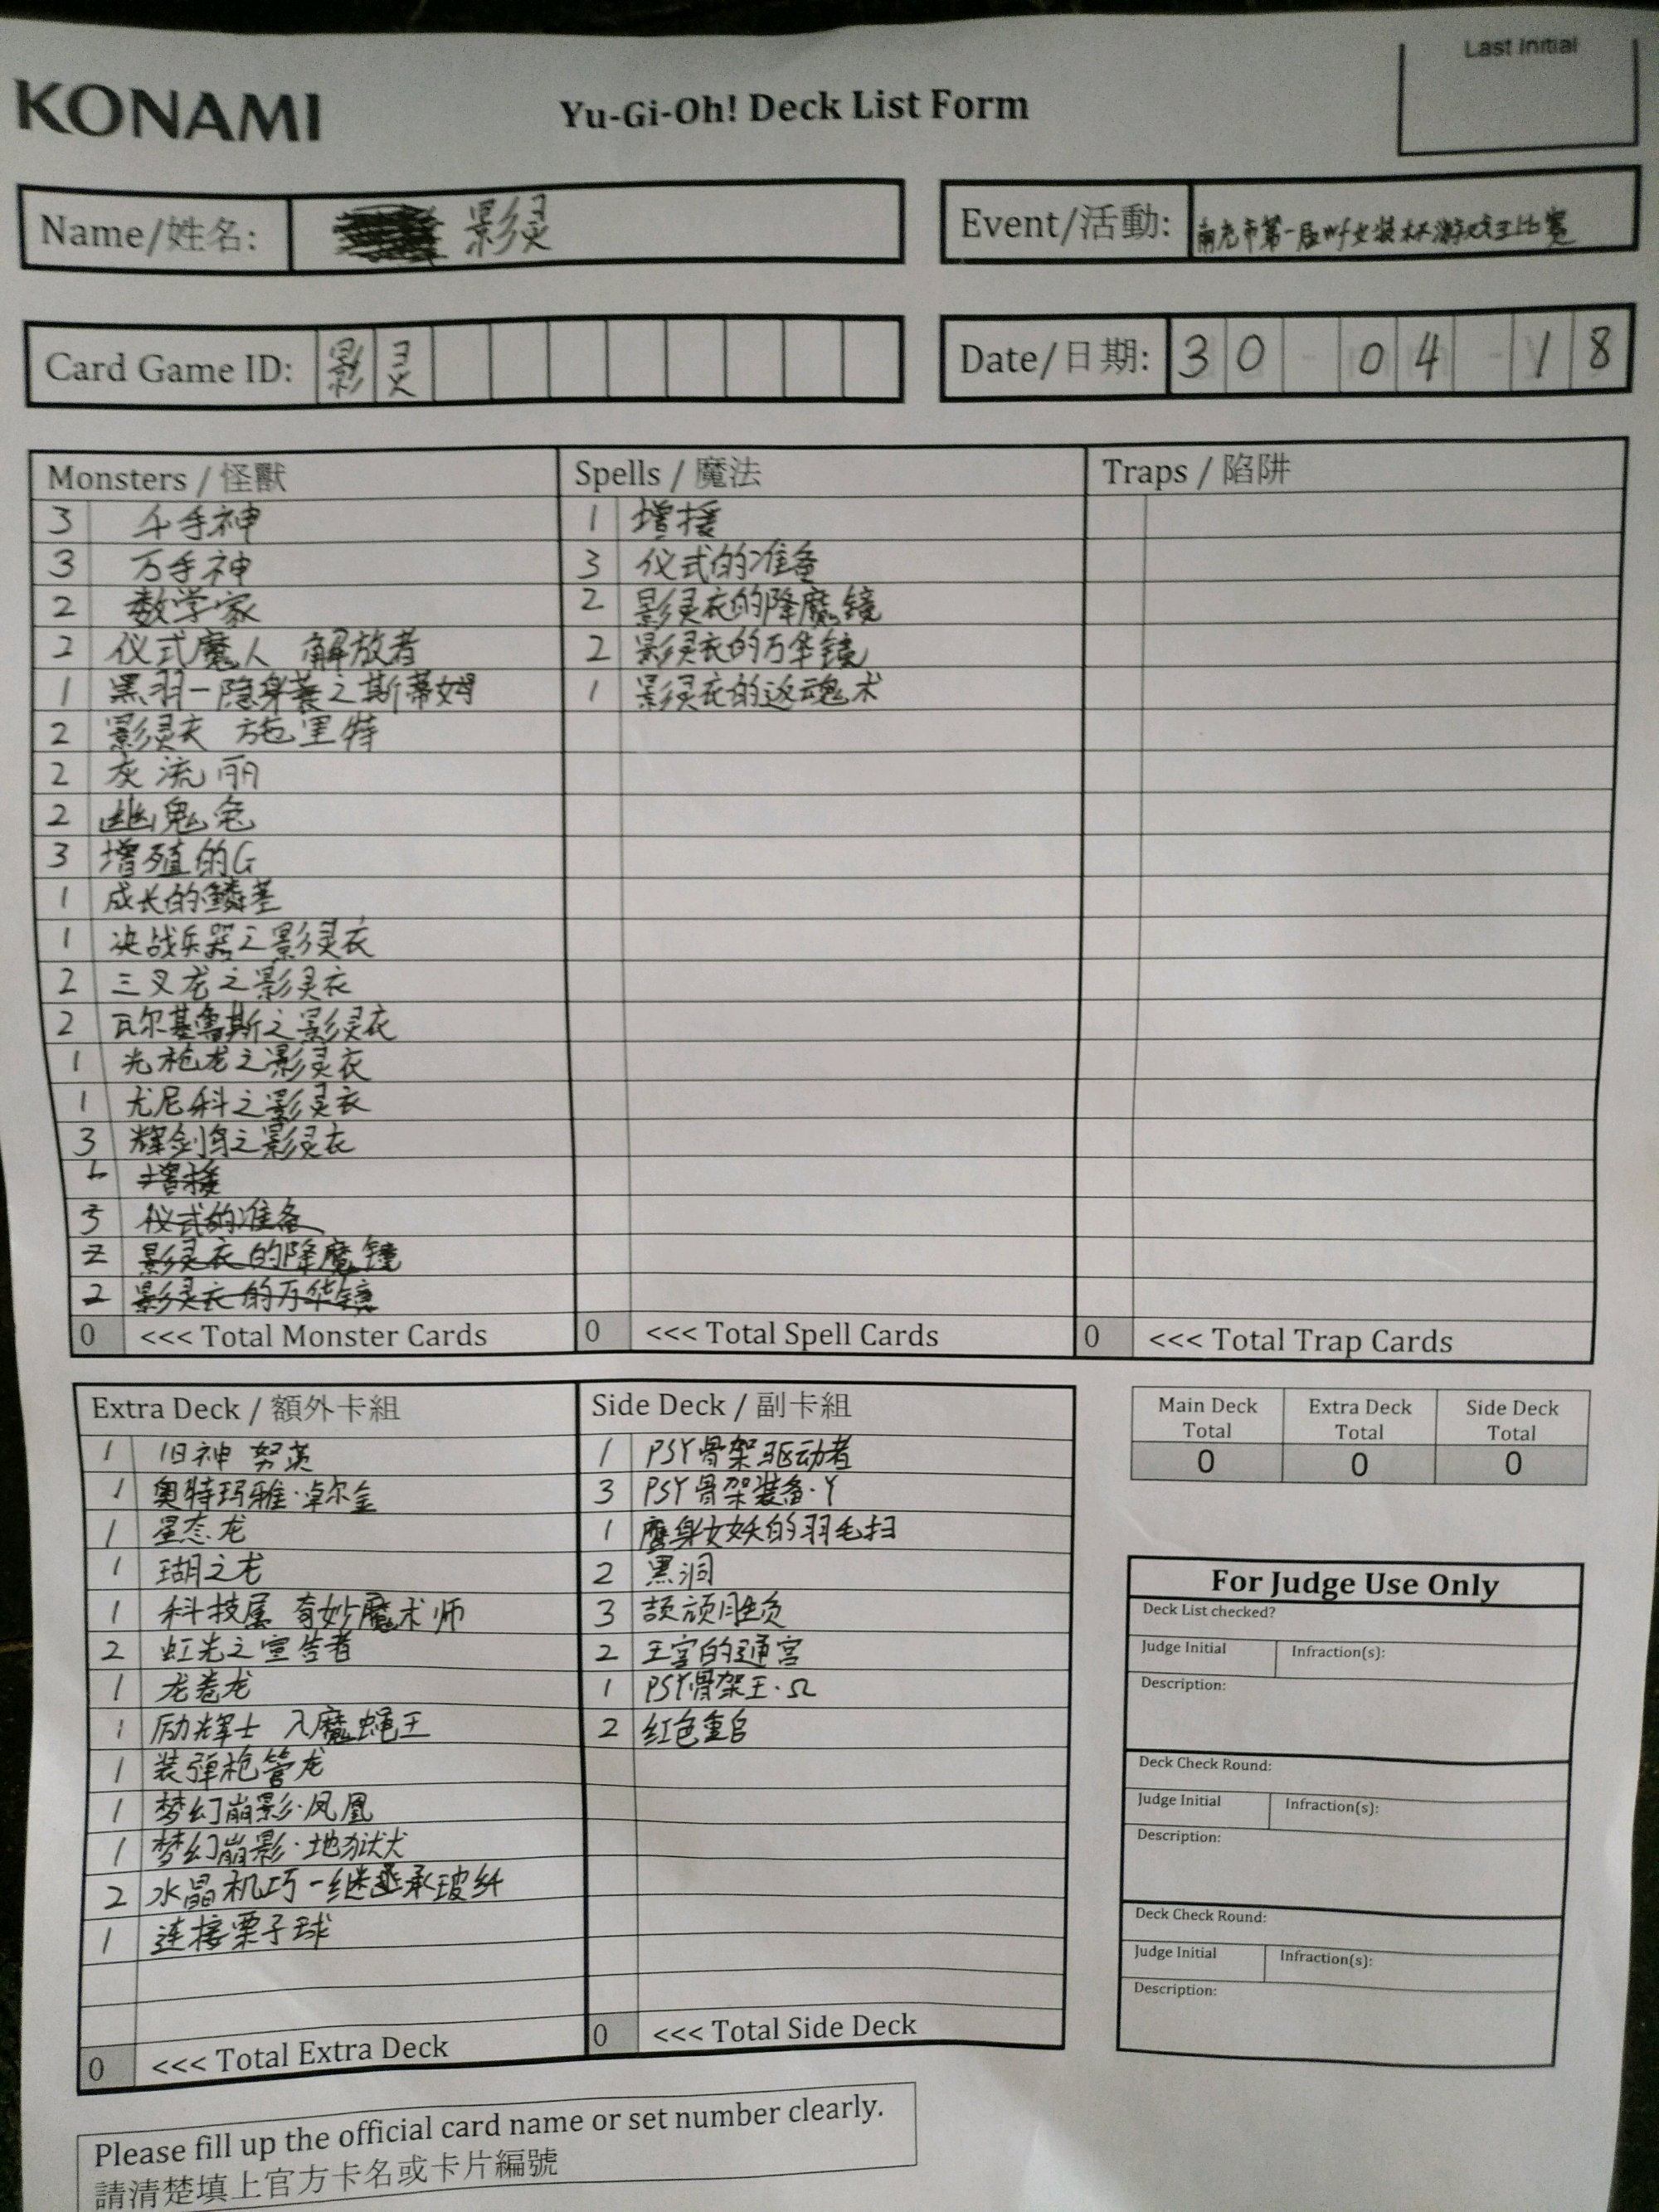 Last Initial
KONAMI
Yu-Gi-Oh! Deck List Form
Name/姓名: 影灵
Event/活動: 南充市第一届叶女装杯游戏王比赛
Card Game ID: 影灵
Date/日期: 30-04-18
Monsters / 怪獸
3 千手神
3 万手神
2 数学家
2 仪式魔人 解放者
1 黑羽-隐身蓑之斯蒂姆
2 影灵衣 施里特
2 灰流丽
2 幽鬼兔
3 增殖的G
1 成长的鳞茎
1 决战兵器之影灵衣
2 三叉龙之影灵衣
2 瓦尔基鲁斯之影灵衣
1 光枪龙之影灵衣
1 尤尼科之影灵衣
3 辉剑鸟之影灵衣
1 增援
3 仪式的准备
2 影灵衣的降魔镜
2 影灵衣的万华镜
0 <<< Total Monster Cards
Spells / 魔法
1 增援
3 仪式的准备
2 影灵衣的降魔镜
2 影灵衣的万华镜
1 影灵衣的返魂术
0 <<< Total Spell Cards
Traps / 陷阱
0 <<< Total Trap Cards
Extra Deck / 額外卡組
1 旧神 努茨
1 奥特玛雅·卓尔金
1 星态龙
1 瑚之龙
1 科技属 奇妙魔术师
2 虹光之宣告者
1 龙卷龙
1 励辉士 入魔蝇王
1 装弹枪管龙
1 梦幻崩影·凤凰
1 梦幻崩影·地狱犬
2 水晶机巧-继承玻纤
1 连接栗子球
0 <<< Total Extra Deck
Side Deck / 副卡組
1 PSY骨架驱动者
3 PSY骨架装备·γ
1 鹰身女妖的羽毛扫
2 黑洞
3 颉颃胜负
2 王宫的通宫
1 PSY骨架王·Ω
2 红色重启
0 <<< Total Side Deck
Main Deck Total
0
Extra Deck Total
0
Side Deck Total
0
For Judge Use Only
Deck List checked?
Judge Initial Infraction(s):
Description:
Deck Check Round:
Judge Initial Infraction(s):
Description:
Deck Check Round:
Judge Initial Infraction(s):
Description:
Please fill up the official card name or set number clearly.
請清楚填上官方卡名或卡片編號